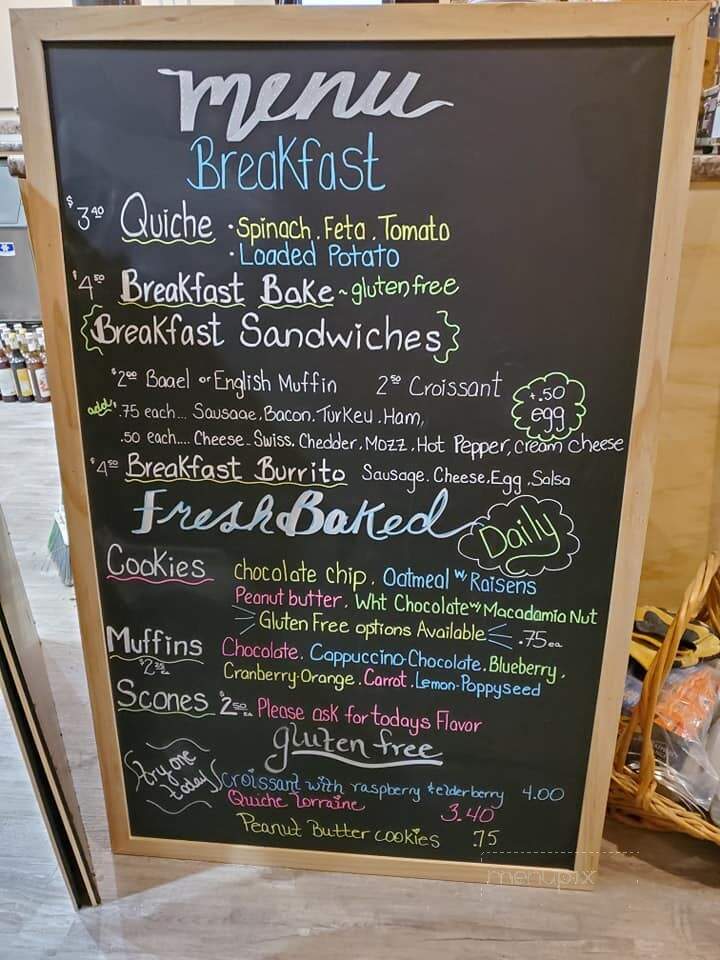 menu
Breakfast
$3.40 Quiche • Spinach, Feta, Tomato
• Loaded Potato
$4.50 Breakfast Bake ~ gluten free
{Breakfast Sandwiches}
$2.00 Bagel or English Muffin 2.50 Croissant
+.50 egg
add .75 each... Sausage, Bacon, Turkey, Ham,
.50 each.... Cheese-Swiss, Chedder, Mozz, Hot Pepper, cream cheese
$4.50 Breakfast Burrito Sausage, Cheese, Egg, Salsa
Fresh Baked Daily
Cookies chocolate chip, Oatmeal w Raisens
Peanut butter, Wht Chocolate w/ Macadamia Nut
Gluten Free options Available .75 ea
Muffins Chocolate, Cappuccino-Chocolate, Blueberry,
$2.35 ea Cranberry-Orange, Carrot, Lemon-Poppyseed
Scones $2.50 ea Please ask for todays Flavor
gluten free
try one today!
croissant with raspberry & elderberry 4.00
Quiche Lorraine 3.40
Peanut Butter cookies .75
menupix